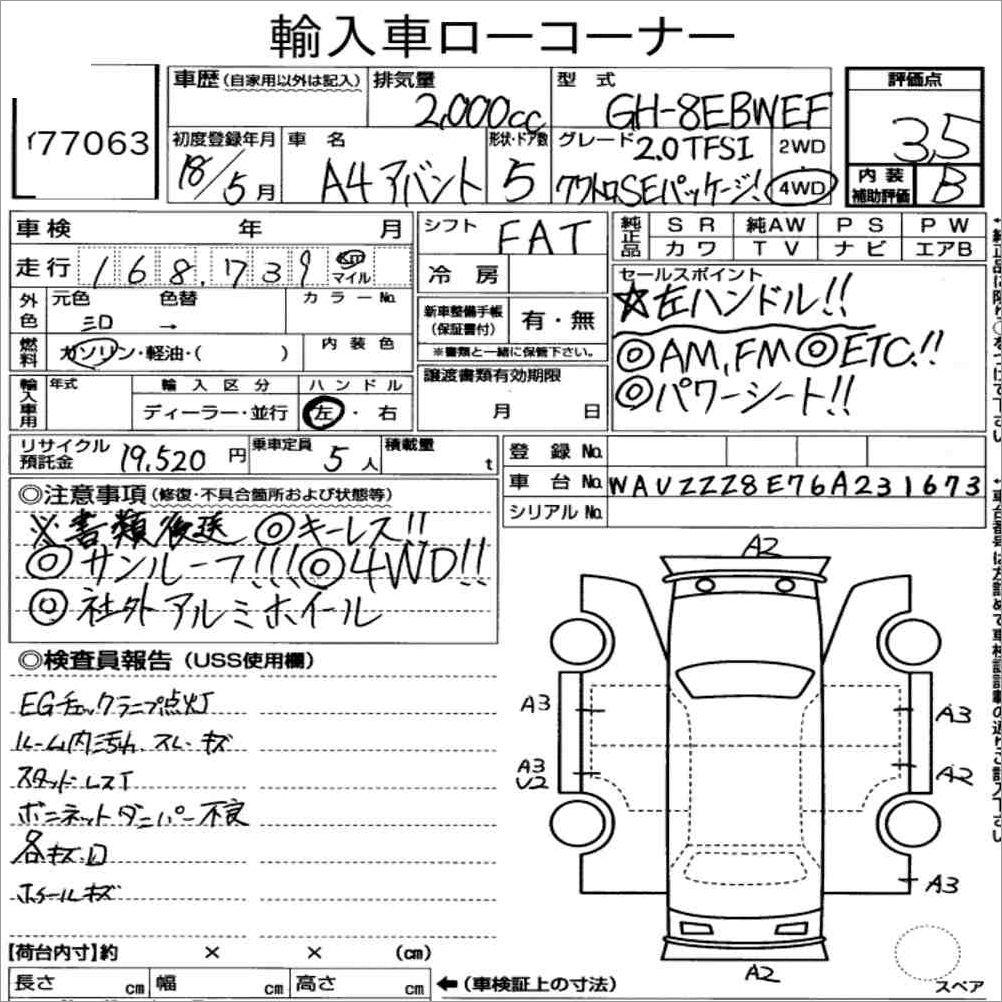 輸入車ローコーナー
77063
車歴(自家用以外は記入) 排気量 2,000cc 型式 GH-8EBWEF
評価点 3,5
初度登録年月 18/5月 車名 A4アバント 形状・ドア数 5 グレード 2.0TFSI クワトロSEパッケージ! 2WD 4WD
内装補助評価 B
車検 年 月
走行 168,739 Km マイル
シフト FAT
冷房
純正品 SR 純AW PS PW
カワ TV ナビ エアB
外色 元色 色替 カラーNo.
→
燃料 ガソリン・軽油・( ) 内装色
新車整備手帳(保証書付) 有・無
※書類と一緒に保管下さい。
セールスポイント
☆左ハンドル!!
◎AM,FM ◎ETC!!
◎パワーシート!!
輸入車用 年式 輸入区分 ハンドル
ディーラー・並行 左・右
譲渡書類有効期限
月 日
リサイクル預託金 19,520円 乗車定員 5人 積載量 t
登録No.
車台No. WAUZZZ8E76A231673
シリアルNo.
◎注意事項(修復・不具合箇所および状態等)
※書類後送 ◎キーレス!!
◎サンルーフ!!! ◎4WD!!
◎社外アルミホイール
◎検査員報告(USS使用欄)
EGチェックランプ点灯
ルーム内汚れ、スレ・キズ
スタッドレスT
ボンネットダンパー不良
各キズ・凹
ホイールキズ
A2
A3
A3
A3
U2
A2
A3
A2
スペア
【荷台内寸】約 × × (cm)
長さ cm 幅 cm 高さ cm ←(車検証上の寸法)